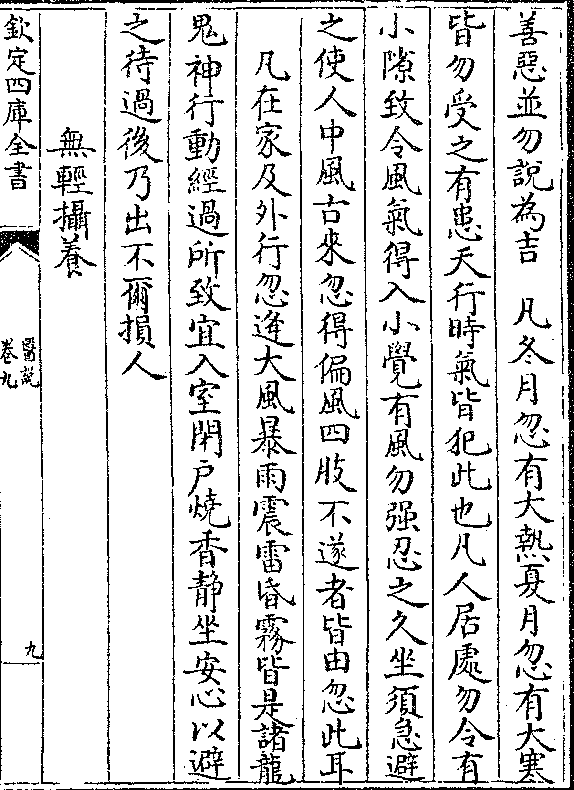 善惡並勿說為吉　凡冬月忽有大熱夏月忽有大寒
皆勿受之有患天行時氣皆犯此也凡人居處勿令有
小隙致令風氣得入小覺有風勿强忍之久坐須急避
之使人中風古來忽得偏風四肢不遂者皆由忽此耳
凡在家及外行忽逢大風暴雨震雷昏霧皆是諸龍
鬼神行動經過所致宜入室閉戶燒香静坐安心以避
之待過後乃出不爾損人
無輕攝養
欽定四庫全書
醫說
卷九
九